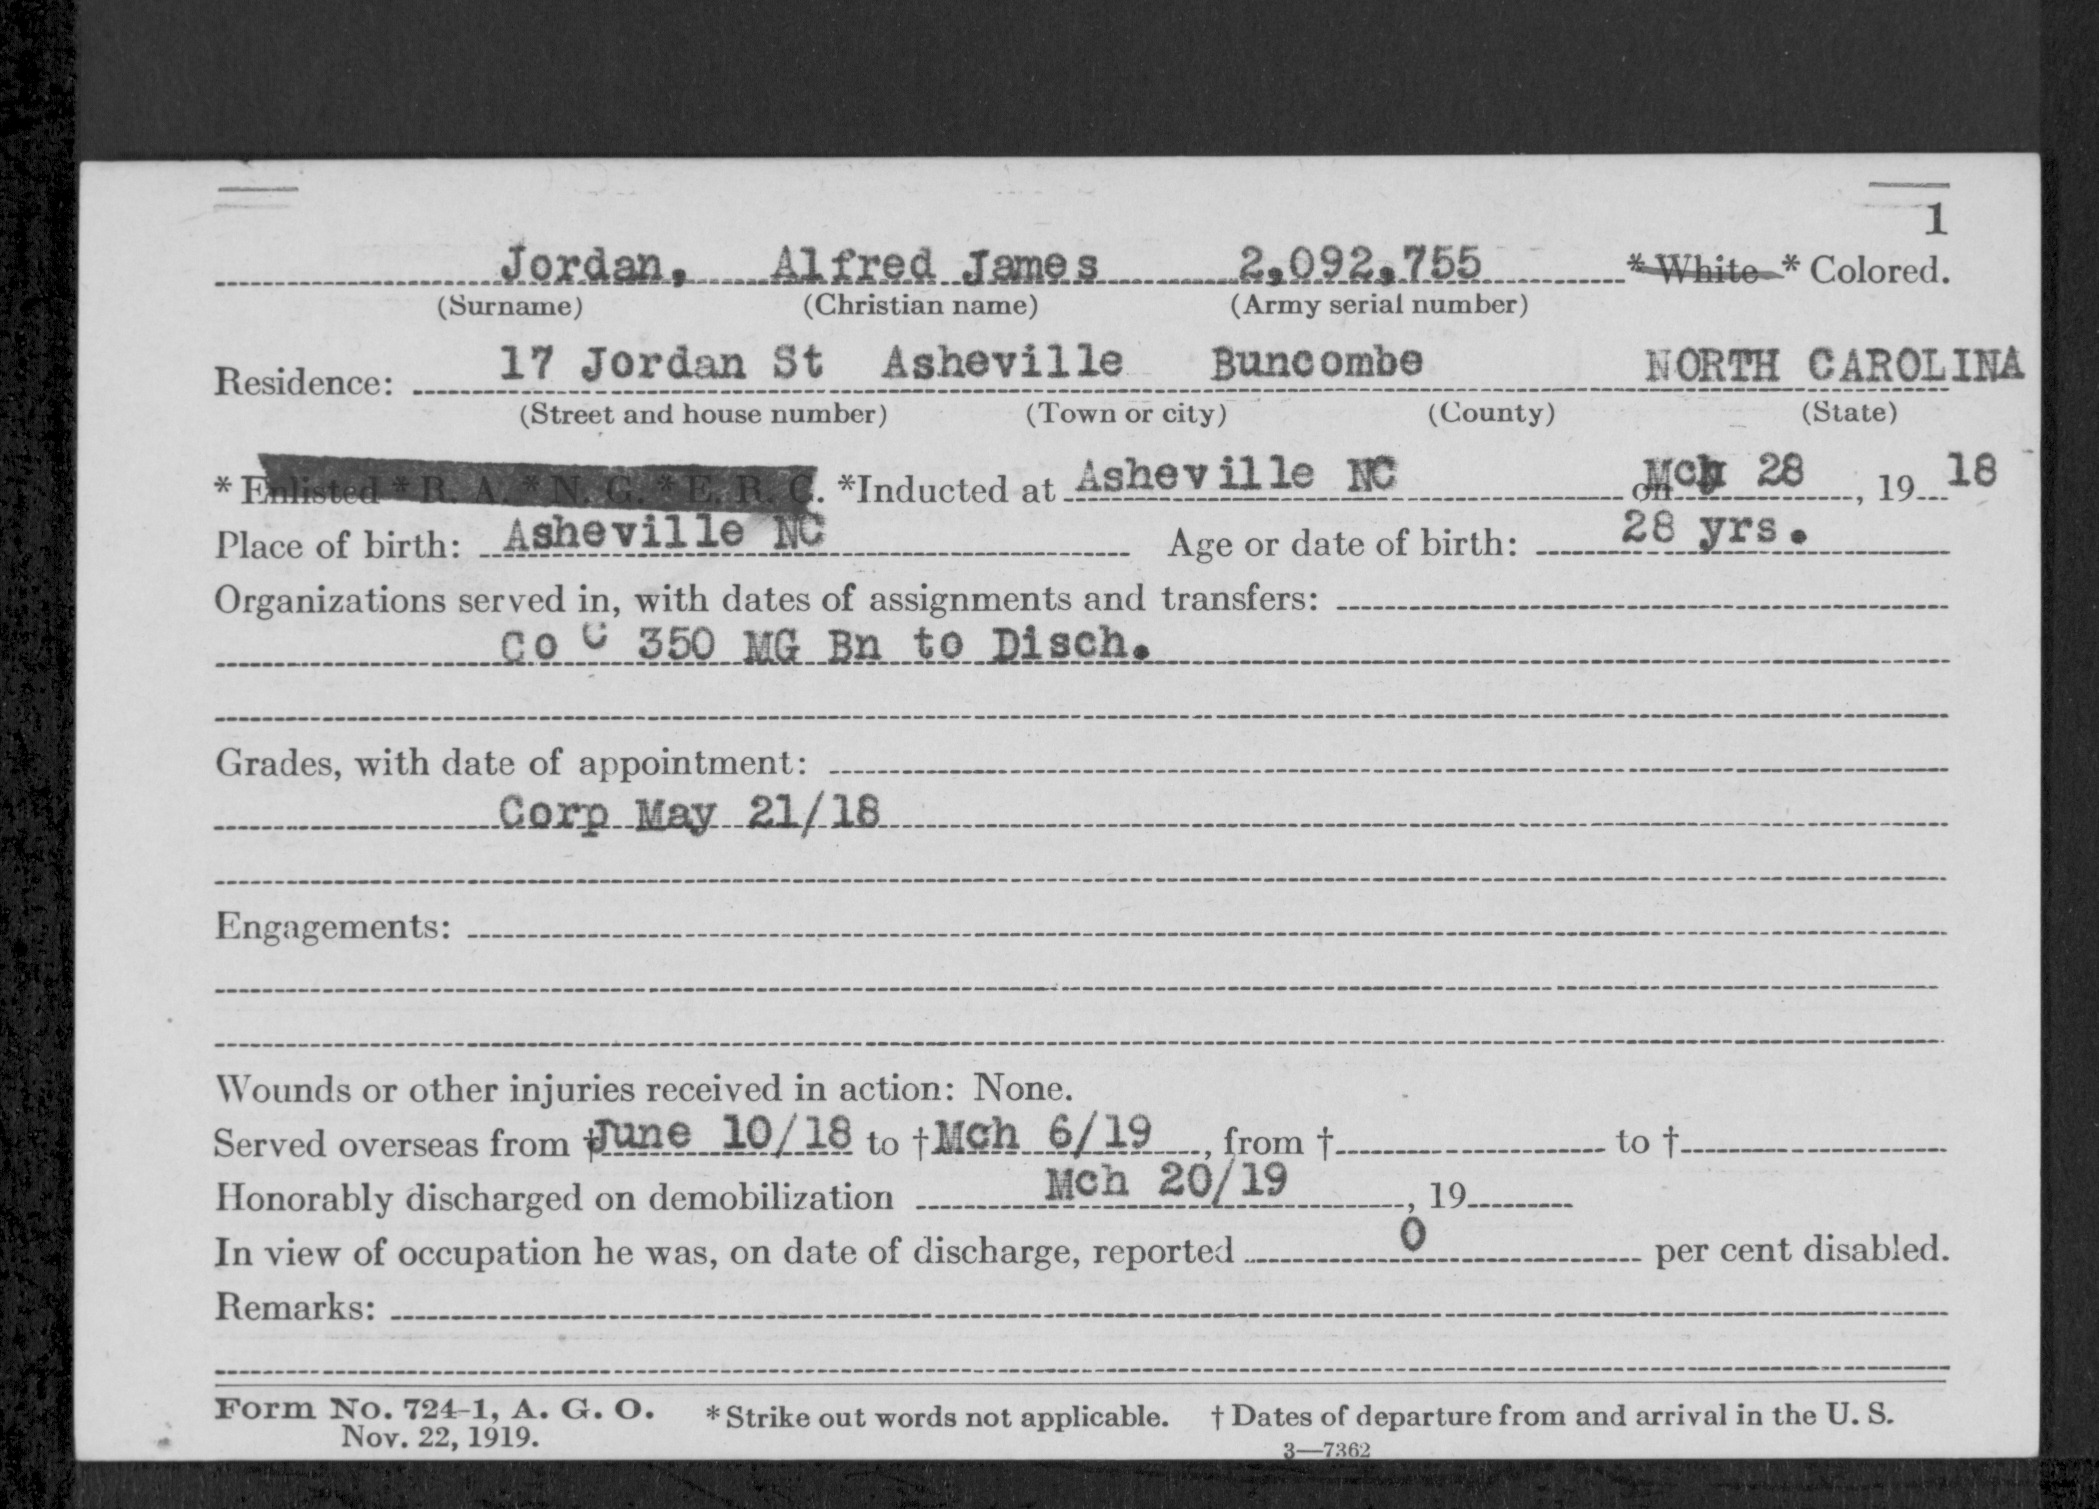 1
Jordan, Alfred James 2,092,755 * White * Colored.
(Surname) (Christian name) (Army serial number)
Residence: 17 Jordan St Asheville Buncombe NORTH CAROLINA
(Street and house number) (Town or city) (County) (State)
* Enlisted * R. A. * N. G. * E. R. C. *Inducted at Asheville NC on Mch 28, 19 18
Place of birth: Asheville NC Age or date of birth: 28 yrs.
Organizations served in, with dates of assignments and transfers:
Co C 350 MG Bn to Disch.
Grades, with date of appointment:
Corp May 21/18
Engagements:
Wounds or other injuries received in action: None.
Served overseas from † June 10/18 to † Mch 6/19, from † to †
Honorably discharged on demobilization Mch 20/19, 19
In view of occupation he was, on date of discharge, reported 0 per cent disabled.
Remarks:
Form No. 724-1, A. G. O. * Strike out words not applicable. † Dates of departure from and arrival in the U. S.
Nov. 22, 1919.
3—7362